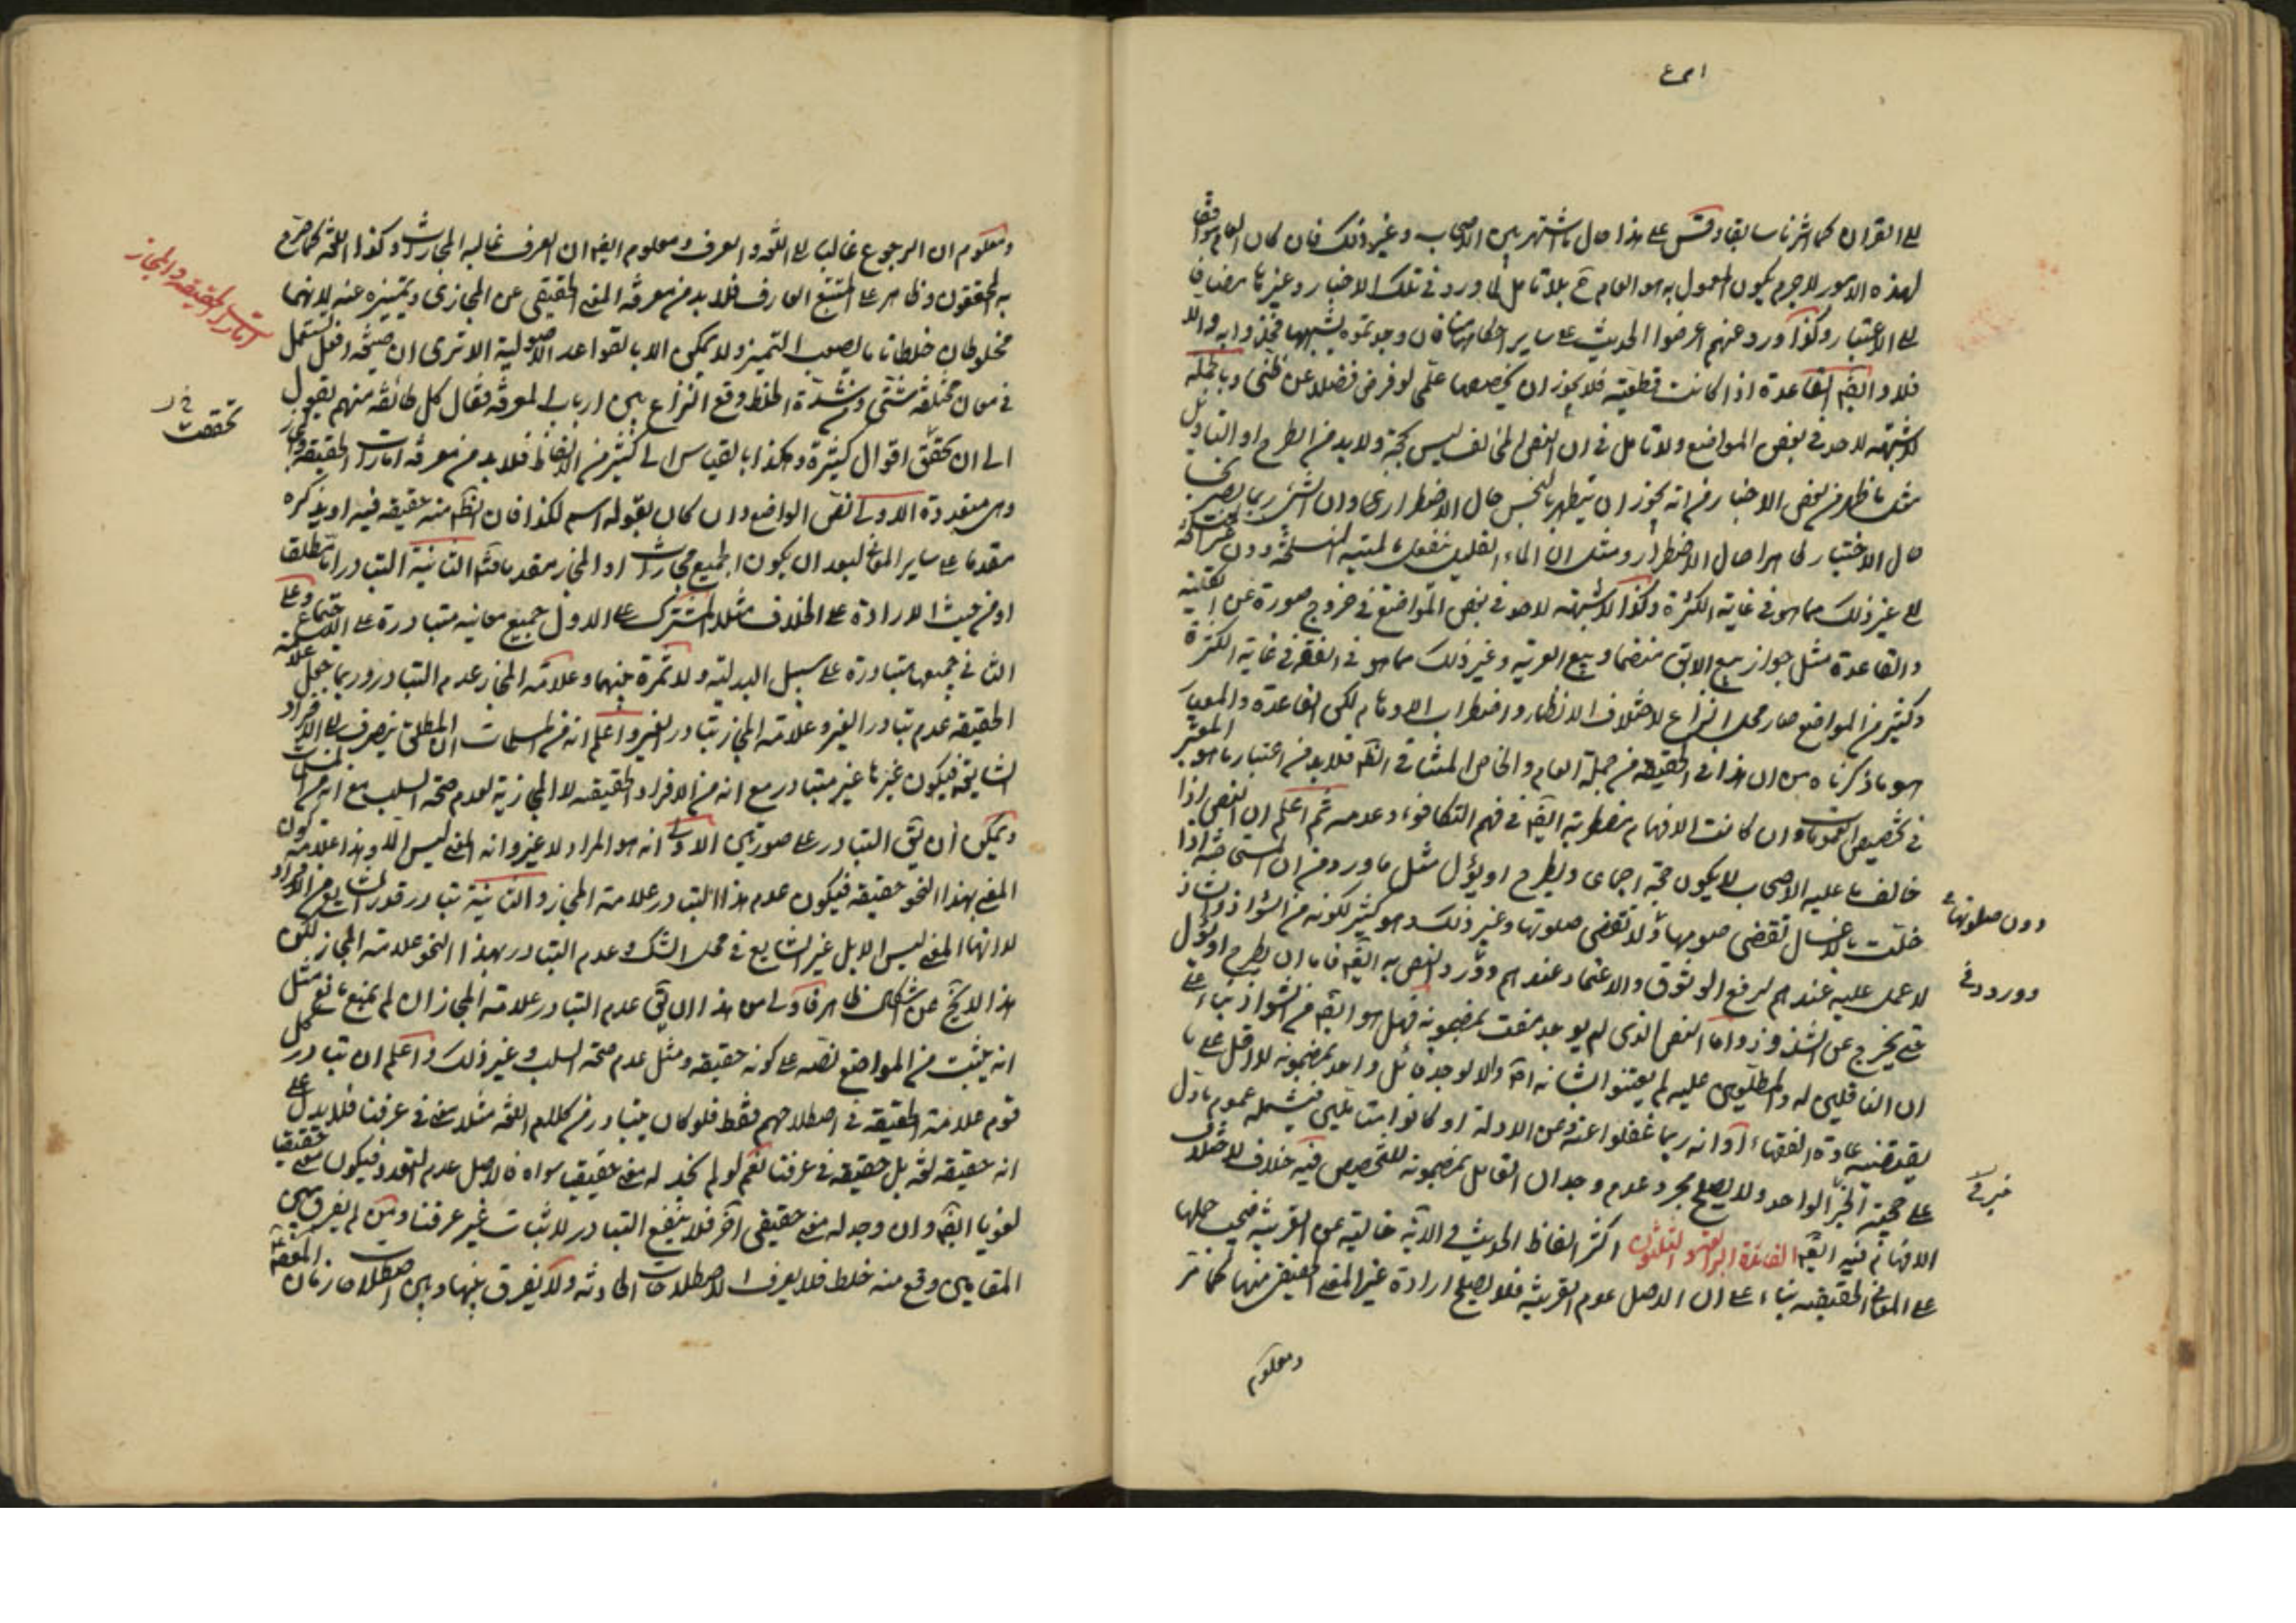 الى القران كما اشرنا سابقا وقس على هذا حال ما اشتهر بين الاصحاب وغير ذلك فان كان العام موافقا
لهذه الامور لاجرم يكون المعمول به هو العام ح بلا تامل لما ورد في تلك الاخبار وغيرها مضافا
الى الاعتبار وكذا ورد عنهم اعرضوا الحديث على ساير احكامنا فان وجدتموه يشبهها فخذوا به والا
فلا وايضا القاعدة اذا كانت قطعية فلا يجوز ان يخصصها علمي لو فرض فضلا عن ظني وبالجملة
لا شبهة لاحد في بعض المواضع ولا تامل في ان النص المخالف ليس بحجة ولا بد من الطرح او التاويل
مثل ما ظهر من بعض الاخبار من انه يجوز ان يتطهر بالنجس حال الاضطرار وان الشيء ربما يصير نجسا
حال الاختيار طاهرا حال الاضطرار ومثل ان الماء القليل ينفعل بالميتة المنسلخة دون
الى غير ذلك مما هو في غاية الكثرة وكذا لا شبهة لاحد في بعض المواضع في خروج صورة عن الكلية
والقاعدة مثل جواز بيع الابق منضما وبيع العرية وغير ذلك مما هو في الفقه في غاية الكثرة
وكثير من المواضع صار محل النزاع لاختلاف الانظار واضطراب الاوهام لكن القاعدة والمعيار
هو ما ذكرناه من ان هذا في الحقيقة من جملة العام والخاص المتنافي الظاهر فلا بد من اعتبار ما هو المعتبر
في تخصيص العمومات وان كانت الافهام مضطربة ايضا في فهم التكافوء وعدمه ثم اعلم ان النص اذا
خالف ما عليه الاصحاب لا يكون حجة اجماعا ويطرح او يؤل مثل ما ورد من ان المستحاضة اذا
اخلت بالاغسال تقضي صومها ولا تقضي صلوتها وغير ذلك وهو كثير لكونه من الشواذ والشاذ
دون صلوتها
لا عمل عليه عندهم لرفع الوثوق والاعتماد عندهم وورد النص به ايضا فاما ان يطرح او يؤل
وورود في
حتى يخرج عن الشذوذ واما النص الذي لم يوجد مفت بمضمونه فهل هو ايضا من الشواذ بناء على
ان الناقلين له والمطلعين عليه لم يعتنوا بشانه اصلا والا لوجد قائل واحد بمضمونه لا اقل على ما
يقتضيه عادة الفقهاء او انه ربما غفلوا عنه وعن الادلة او كانوا متاملين فيشمله عموم ما دل
على حجية الخبر الواحد ولا يصلح مجرد عدم وجدان القائل بمضمونه للتخصيص فيه خلاف لاختلاف
خبر في
الافهام فيه ايضا الفائدة الرابعة والثلثون اكثر الفاظ الحديث والاية خالية عن القرينة فيجب حملها
على المعاني الحقيقية بناء على ان الاصل عدم القرينة فلا يصلح ارادة غير المعنى الحقيقي منها كما مر
ومعلوم
ومعلوم ان الرجوع غالبا الى اللغة والعرف ومعلوم ايضا ان العرف غالبه المجازات وكذا اللغة كما صرح
به المحققون وظاهر على المتتبع العارف فلا بد من معرفة المعنى الحقيقي عن المجازي وتميزه عنه لانهما
امارات الحقيقة والمجاز
مخلوطان خلطا ما يصعب التميز ولا يمكن الا بالقواعد الاصولية الا ترى ان صيغة افعل تستعمل
في معان مختلفة شتى ولشدة الخلط وقع النزاع بين ارباب المعرفة فقال كل طائفة منهم بقول
الى ان تحقق اقوال كثيرة وهكذا بالقياس الى كثير من الالفاظ فلا بد من معرفة امارات الحقيقة والمجاز
تحققت
وهي متعددة الاولى نص الواضع وان كان بقوله اسم لكذا فان الظاهر منه حقيقة فيه او بذكره
مقدما على ساير المعاني لبعد ان يكون الجميع مجازات او المجاز مقدما فتامل الثانية التبادر اما مطلقا
او من حيث الارادة على الخلاف مثلا المشترك على الاول جميع معانيه متبادرة على الاجتماع وعلى
الثاني جميعها متبادرة على سبيل البدلية ولا ثمرة بينهما وعلامة المجاز عدم التبادر وربما جعل علامة
الحقيقة عدم تبادر الغير وعلامة المجاز تبادر الغير واعلم انه من المسلمات ان المطلق ينصرف الى الافراد
الشايعة فيكون غيرها غير متبادر مع انه من الافراد الحقيقية لا المجازية لعدم صحة السلب مع انه من المسلمات
ويمكن ان يق التبادر على صورتين الاولى انه هو المراد لا غير وانه المعنى ليس الا وهذا علامة كون
المعنى بهذا النحو حقيقة فيكون عدم هذا التبادر علامة المجاز والثانية تبادر قدر الشايع من الافراد
لا انه المعنى ليس الا بل غير الشايع في محل الشك وعدم التبادر بهذا النحو علامة المجاز لكن
هذا لا يخ عن اشكال ظاهر فالاولى من هذا ان يق عدم التبادر علامة المجاز ان لم يمنع مانع مثل
انه يثبت من المواضع نصه على كونه حقيقة ومثل عدم صحة السلب وغير ذلك واعلم ان تبادر كل
قوم علامة الحقيقة في اصطلاحهم فقط فلو كان يتبادر من كلام اللغة مثلا معنى في عرفنا فلا يدل على
انه حقيقة لغة بل حقيقة في عرفنا نعم لو لم نجد له معنى حقيقيا سواه فالاصل عدم التعدد فيكون معنى حقيقيا
لغويا ايضا وان وجد له معنى حقيقي اخر فلا ينفع التبادر لاثبات غير عرفنا ومن لم يفرق بين
المقامين وقع منه خلط فلا يعرف الاصطلاحات الحادثة ولا يفرق بينها وبين اصطلاح زمان المعصوم